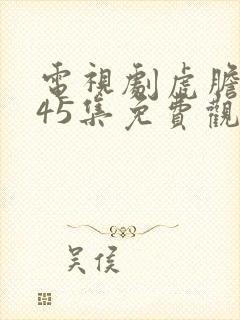 電視劇虎膽
45集免費觀
吴侯